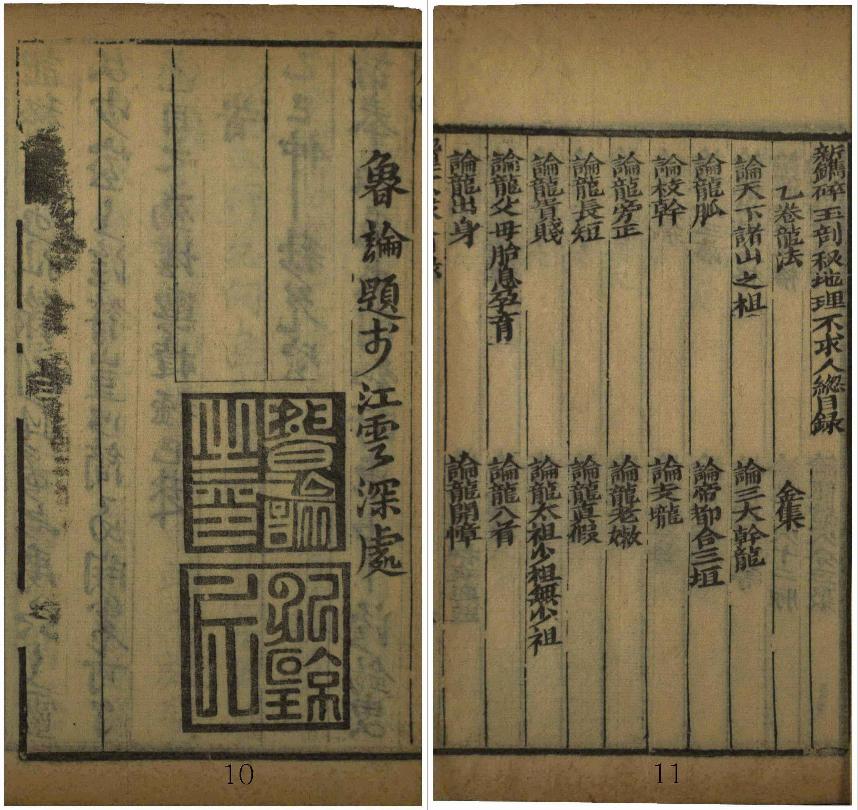 魯論題扵江雲深處
10
新鐫碎玉剖秘地理不求人總目錄
乙卷龍法 金集
論天下諸山之祖 論三大幹龍
論龍脉 論帝都合三垣
論枝幹 論支壠
論龍旁正 論龍老嫩
論龍長短 論龍真假
論龍貴賤 論龍太祖少祖無少祖
論龍父母胎息孕育 論龍入首
論龍出身 論龍開幛
11